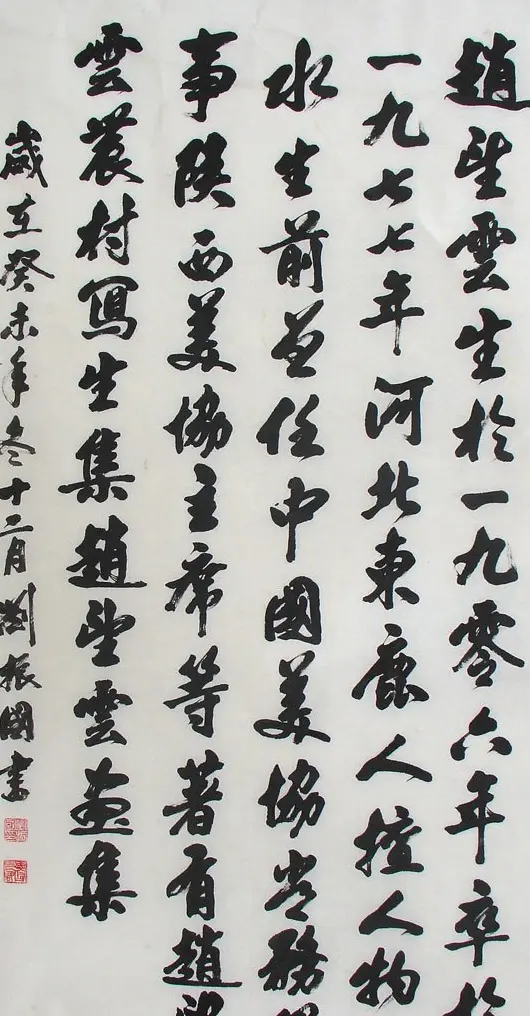 趙望雲生於一九零六年卒於
一九七七年河北束鹿人擅人物
水生前曾任中國美協常務
事陝西美協主席等著有趙望
雲農村寫生集趙望雲畫集
歲在癸未年冬十二月劉振國書